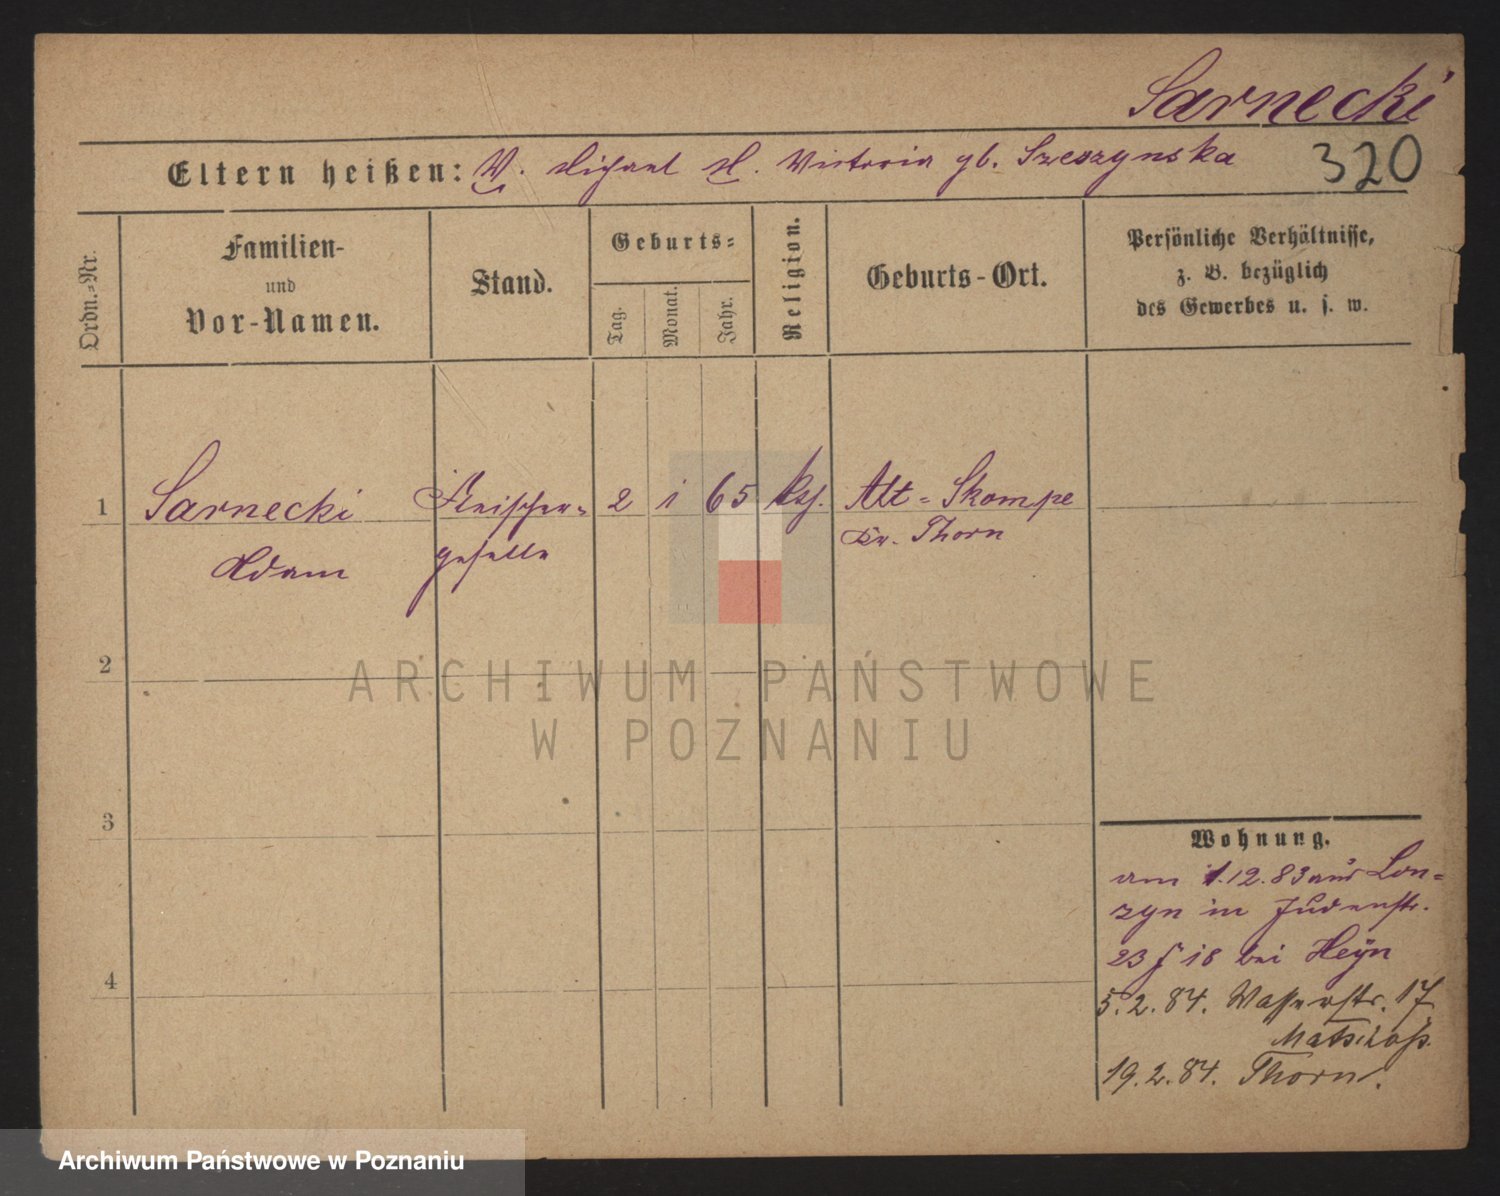 Sarnecki
Eltern heißen: V. Michael M. Victoria gb. Szeszynska 320
Ordn.-Nr.
Familien-
und
Vor-Namen.
Stand.
Geburts-
Tag.
Monat.
Jahr.
Religion.
Geburts-Ort.
Persönliche Verhältnisse,
z. B. bezüglich
des Gewerbes u. s. w.
1 Sarnecki Fleischer- 2 1 65 kath. Alt-Skompe
Adam geselle Kr. Thorn
2
3
4
Wohnung.
am 1.12.83 aus Lon-
zyn in Judenstr.
23 18 bei Heyn
5.2.84. Wasserstr. 17
19.2.84. Thorn.
ARCHIWUM PAŃSTWOWE
W POZNANIU
Archiwum Państwowe w Poznaniu